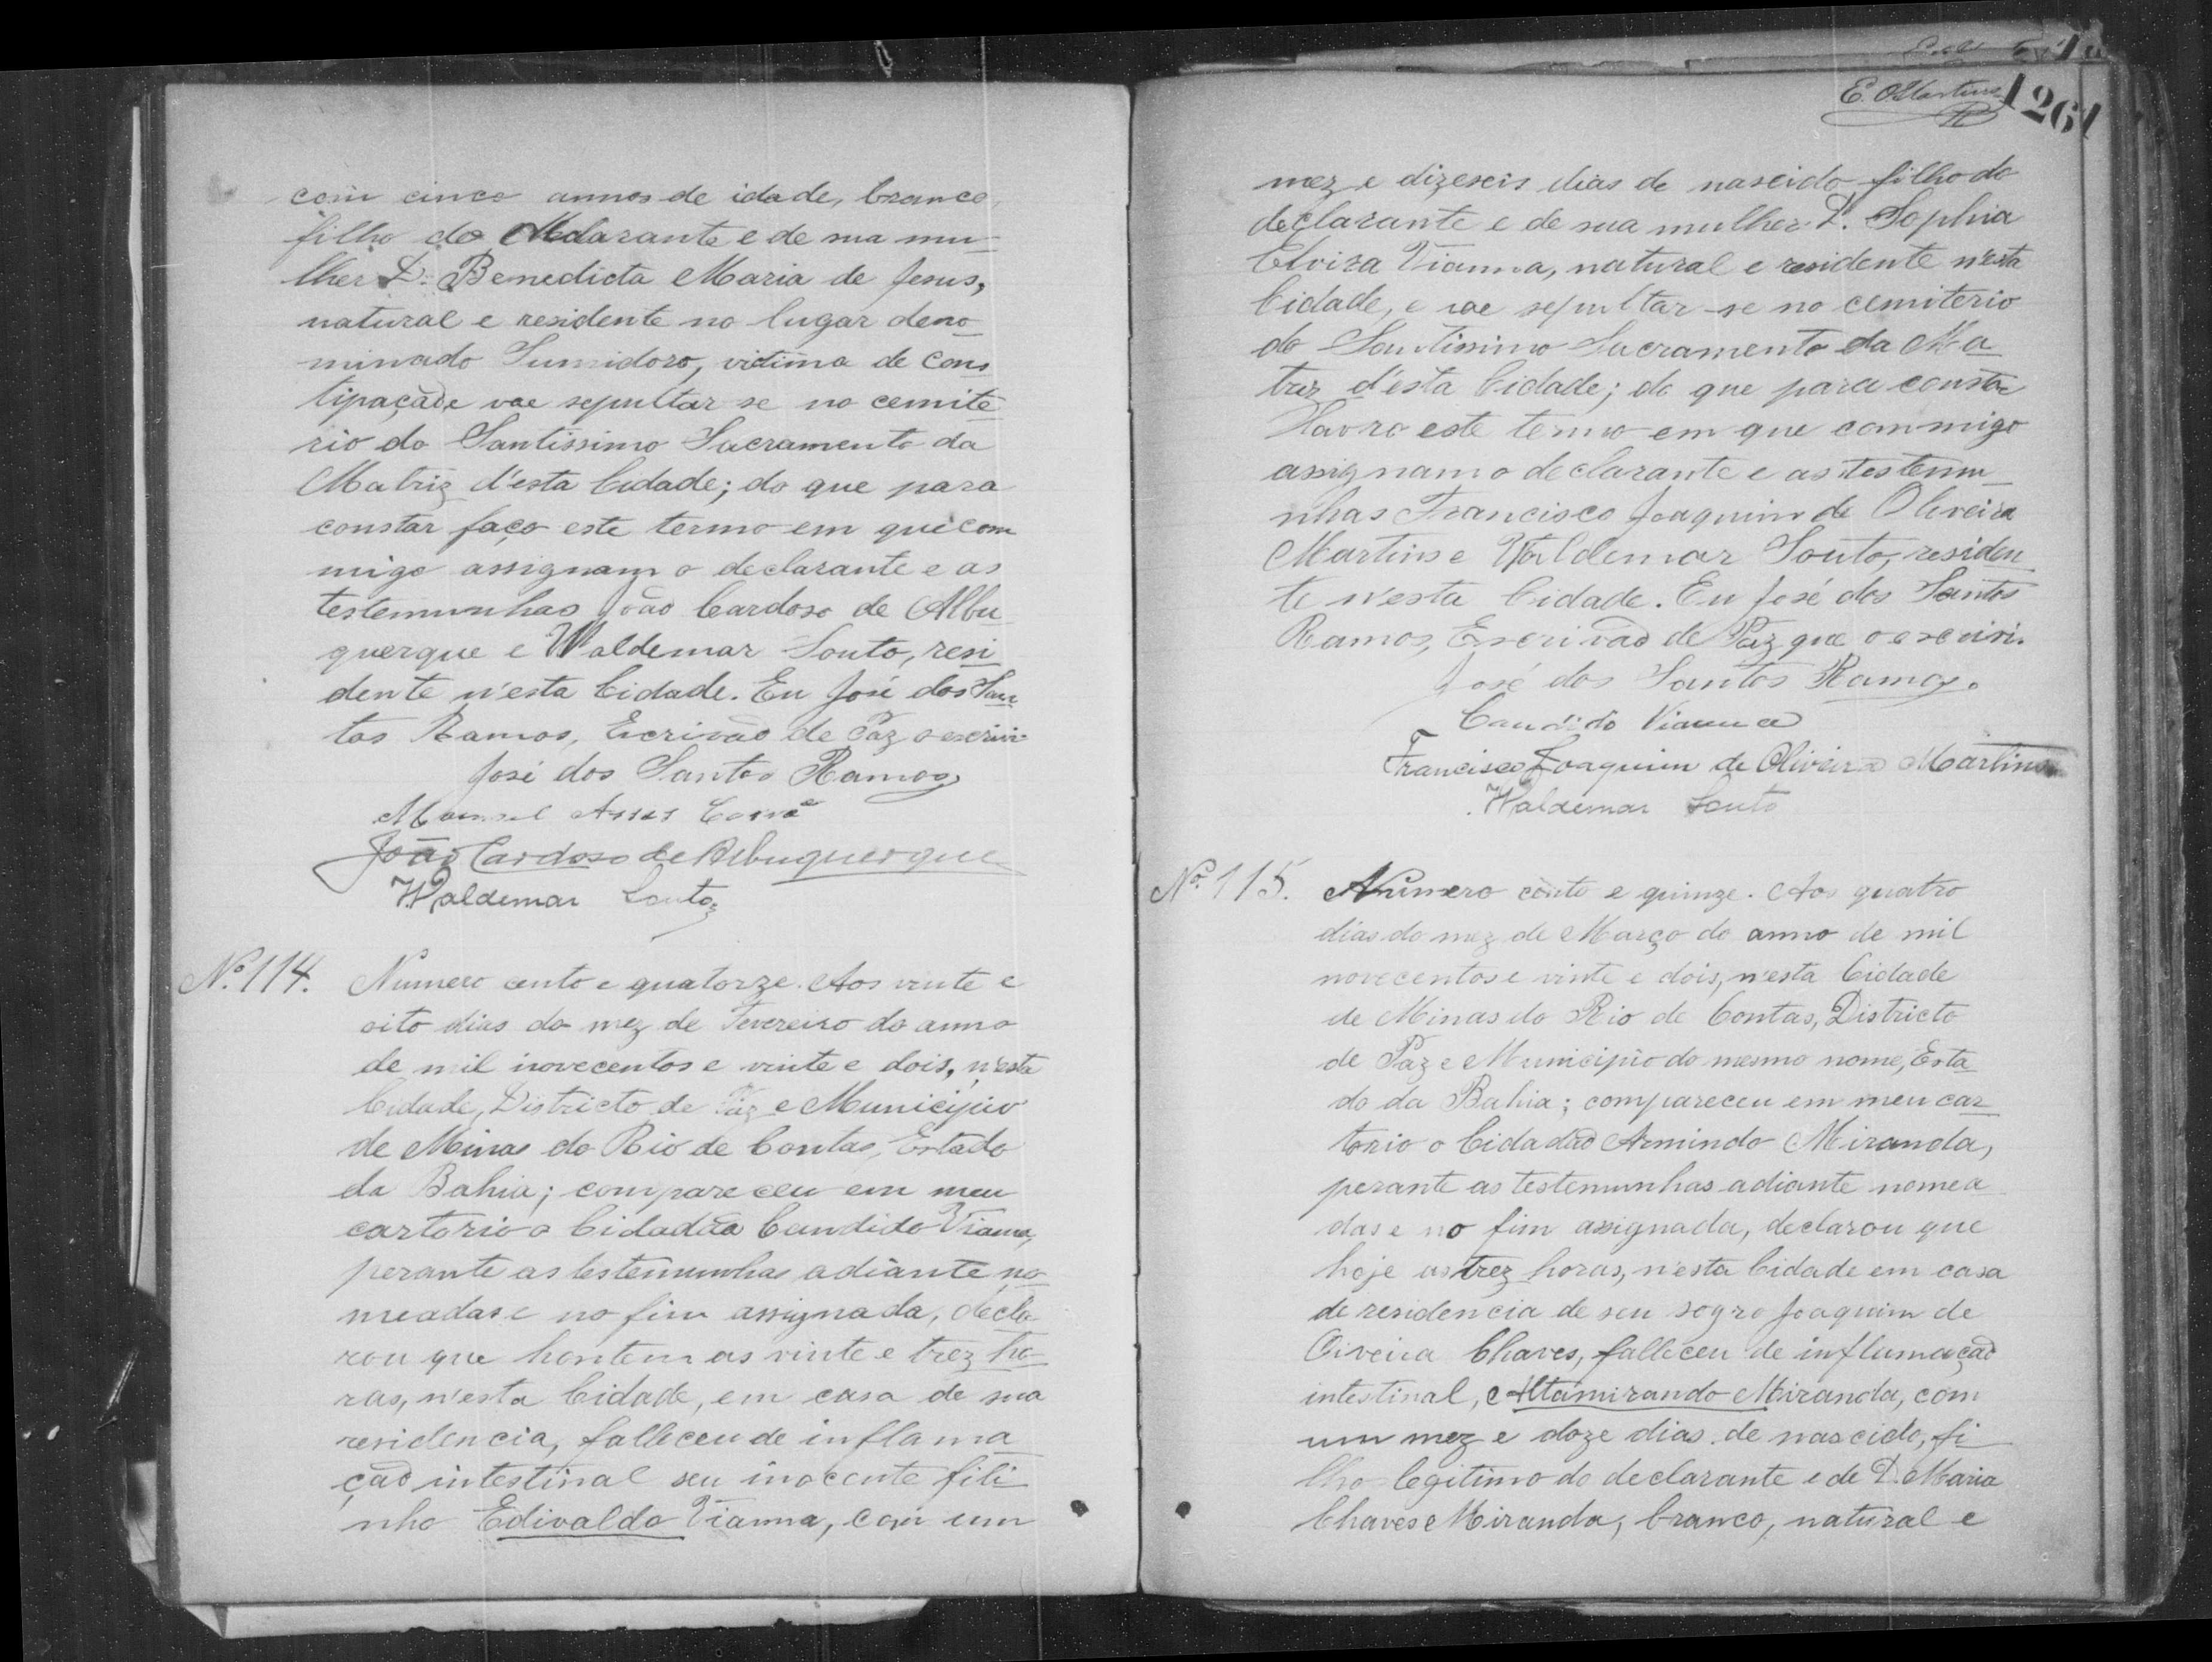 com cinco annos de idade, branco,
filho do declarante e de sua mu-
lher D. Benedicta Maria de Jesus,
natural e residente no lugar deno-
minado Sumidoro, victima de cons
tipação, e vae sepultar se no cemite
rio do Santissimo Sacramento da
Matriz d'esta Cidade; do que para
constar faço este termo em que com
migo assignam o declarante e as
testemunhas João Cardoso de Albu
querque e Waldemar Souto, resi
dente n'esta Cidade. Eu José dos San
tos Ramos, Escrivão de Paz o escrivi
José dos Santos Ramos
Manoel Assis
João Cardoso de Albuquerque
Waldemar Souto
Nº 114. Numero cento e quatorze. Aos vinte e
oito dias do mez de Fevereiro do anno
de mil novecentos e vinte e dois, n'esta
Cidade, Districto de Paz e Municipio
de Minas do Rio de Contas, Estado
da Bahia; compareceu em meu
cartorio o Cidadão Candido Vianna,
perante as testemunhas adiante no
meadas e no fim assignada, decla
rou que hontem as vinte e trez ho-
ras, n'esta Cidade, em casa de sua
residencia, falleceu de inflama
ção intestinal seu inocente fili
nho Edivaldo Vianna, com um
E. O Martins
126
mez e dizeseis dias de nascido filho do
declarante e de sua mulher D. Sophia
Elviza Vianna, natural e residente n'esta
Cidade, e vae sepultar-se no cemiterio
do Santissimo Sacramento da Ma
triz d'esta Cidade; do que para consta
lavro este termo em que commigo
assignam o declarante e as testemu-
nhas Francisco Joaquim de Oliveira
Martins e Waldemar Souto, residen
te n'esta Cidade. Eu José dos Santos
Ramos, Escrivão de Paz que o escrivi.
José dos Santos Ramos.
Candido Vianna
Francisco Joaquim de Oliveira Martins
Waldemar Souto
Nº 115. Número cento e quinze. Aos quatro
dias do mez de Março do anno de mil
novecentos e vinte e dois, n'esta Cidade
de Minas do Rio de Contas, Districto
de Paz e Municipio do mesmo nome, Esta
do da Bahia; compareceu em meu car
torio o Cidadão Armindo Miranda,
perante as testemunhas adiante nomea
das e no fim assignada, declarou que
hoje as trez horas, n'esta Cidade em casa
de residencia de seu sogro Joaquim de
Oiveira Chaves, falleceu de inflamação
intestinal, Altamirando Miranda, com
um mez e doze dias de nascido, fi
lho legitimo do declarante e de D. Maria
Chaves Miranda, branco, natural e